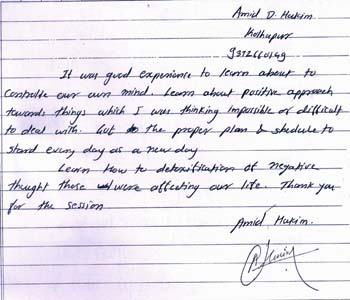 Amid D. Hakim.
Kolhapur
It was good experience to learn about to
controlle our own mind. Learn about positive approach
towards things which I was thinking Impossible or difficult
to deal with. Got the proper plan & shedule to
stand every day as a new day
Learn How to detoxification of negative
thought those were affecting our life. Thank you
for the session
Amid Hakim.